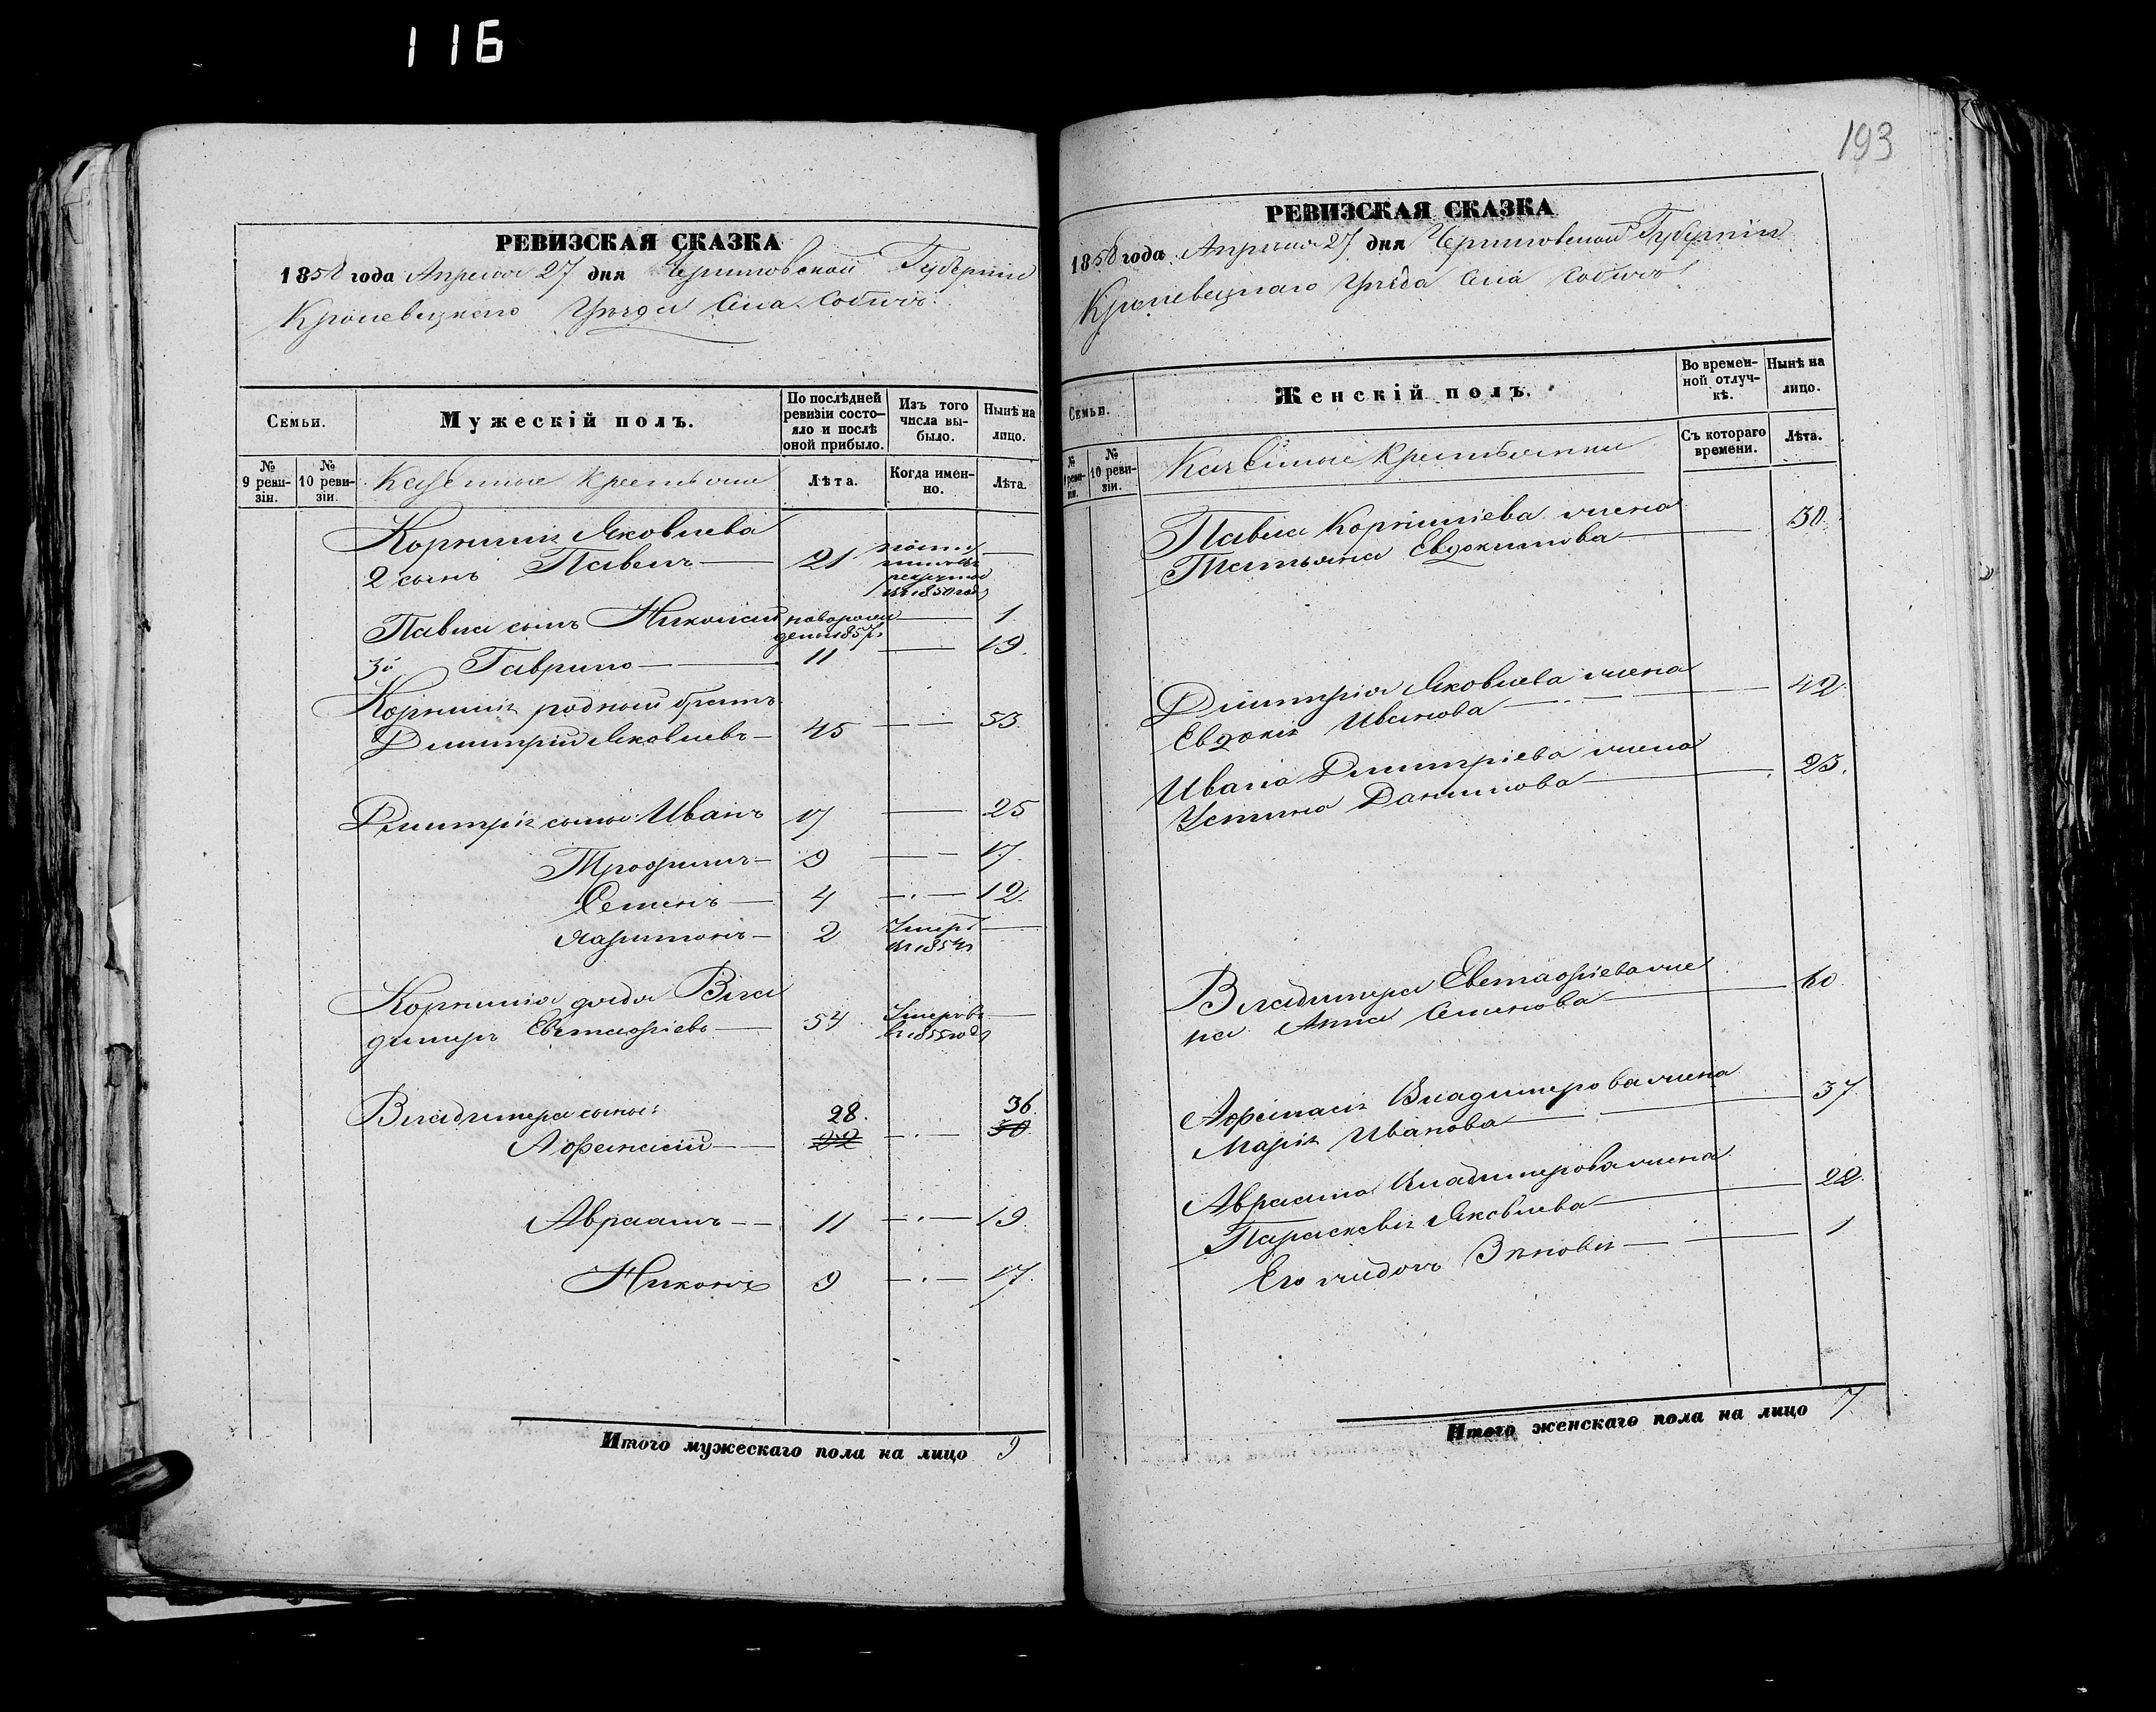 116
РЕВИЗСКАЯ СКАЗКА
1858 года Апреля 27 дня Черниговской Губернии
Кролевецкаго Уѣзда Села Собичъ
Семьи.
Мужескій полъ.
По послѣдней ревизіи состо-
яло и послѣ
оной прибыло.
Изъ того
числа вы-
было.
Нынѣ на
лицо.
№
9 реви-
зіи.
№
10 реви-
зіи.
Казенные крестьяне
Лѣта.
Когда имен-
но.
Лѣта.
Корнилія Яковлева
2 сынъ Павелъ 21
рекруты
въ 1850 году
Павла сынъ Николай новорож 1
денъ 1857
3й Гаврило 11 19
Корнилія родный братъ
Дмитрій Яковлевъ 45 53
Дмитрія сыны: Иванъ 17 25
Трофимъ 9 17
Семенъ 4 12
Харитонъ 2 Умеръ
въ 1854
Корнилія дядя Вла
димеръ Евстафіевъ 54 Умеръ
въ 1855 году
Владимера сыны: 28. 36
Афанасій 22 30
Авраамъ 11 19
Никонъ 9 17
Итого мужескаго пола на лицо 9
193
РЕВИЗСКАЯ СКАЗКА
1858 года Апреля 27 дня Черниговской Губерніи
Кролевецкаго Уѣзда Села Собичъ
Семьи.
Женскій полъ.
Во времен-
ной отлуч-
кѣ.
Нынѣ на
лицо.
№
9 реви-
зіи.
№
10 реви-
зіи.
Казенные крестьянки
Съ котораго
времени.
Лѣта.
Павла Корниліева жена
Татьяна Евдокимова 30
Дмитрія Яковлева жена
Евдокія Иванова 42
Ивана Дмитріева жена
Устина Данилова 23
Владимера Евстафіева же
на Анна Семенова 60
Афанасія Владимерова жена
Марія Иванова 37
Авраама Владимерова жена
Параскевія Яковлева 22
Его дочь Зѣновія 1
Итого женскаго пола на лицо 7